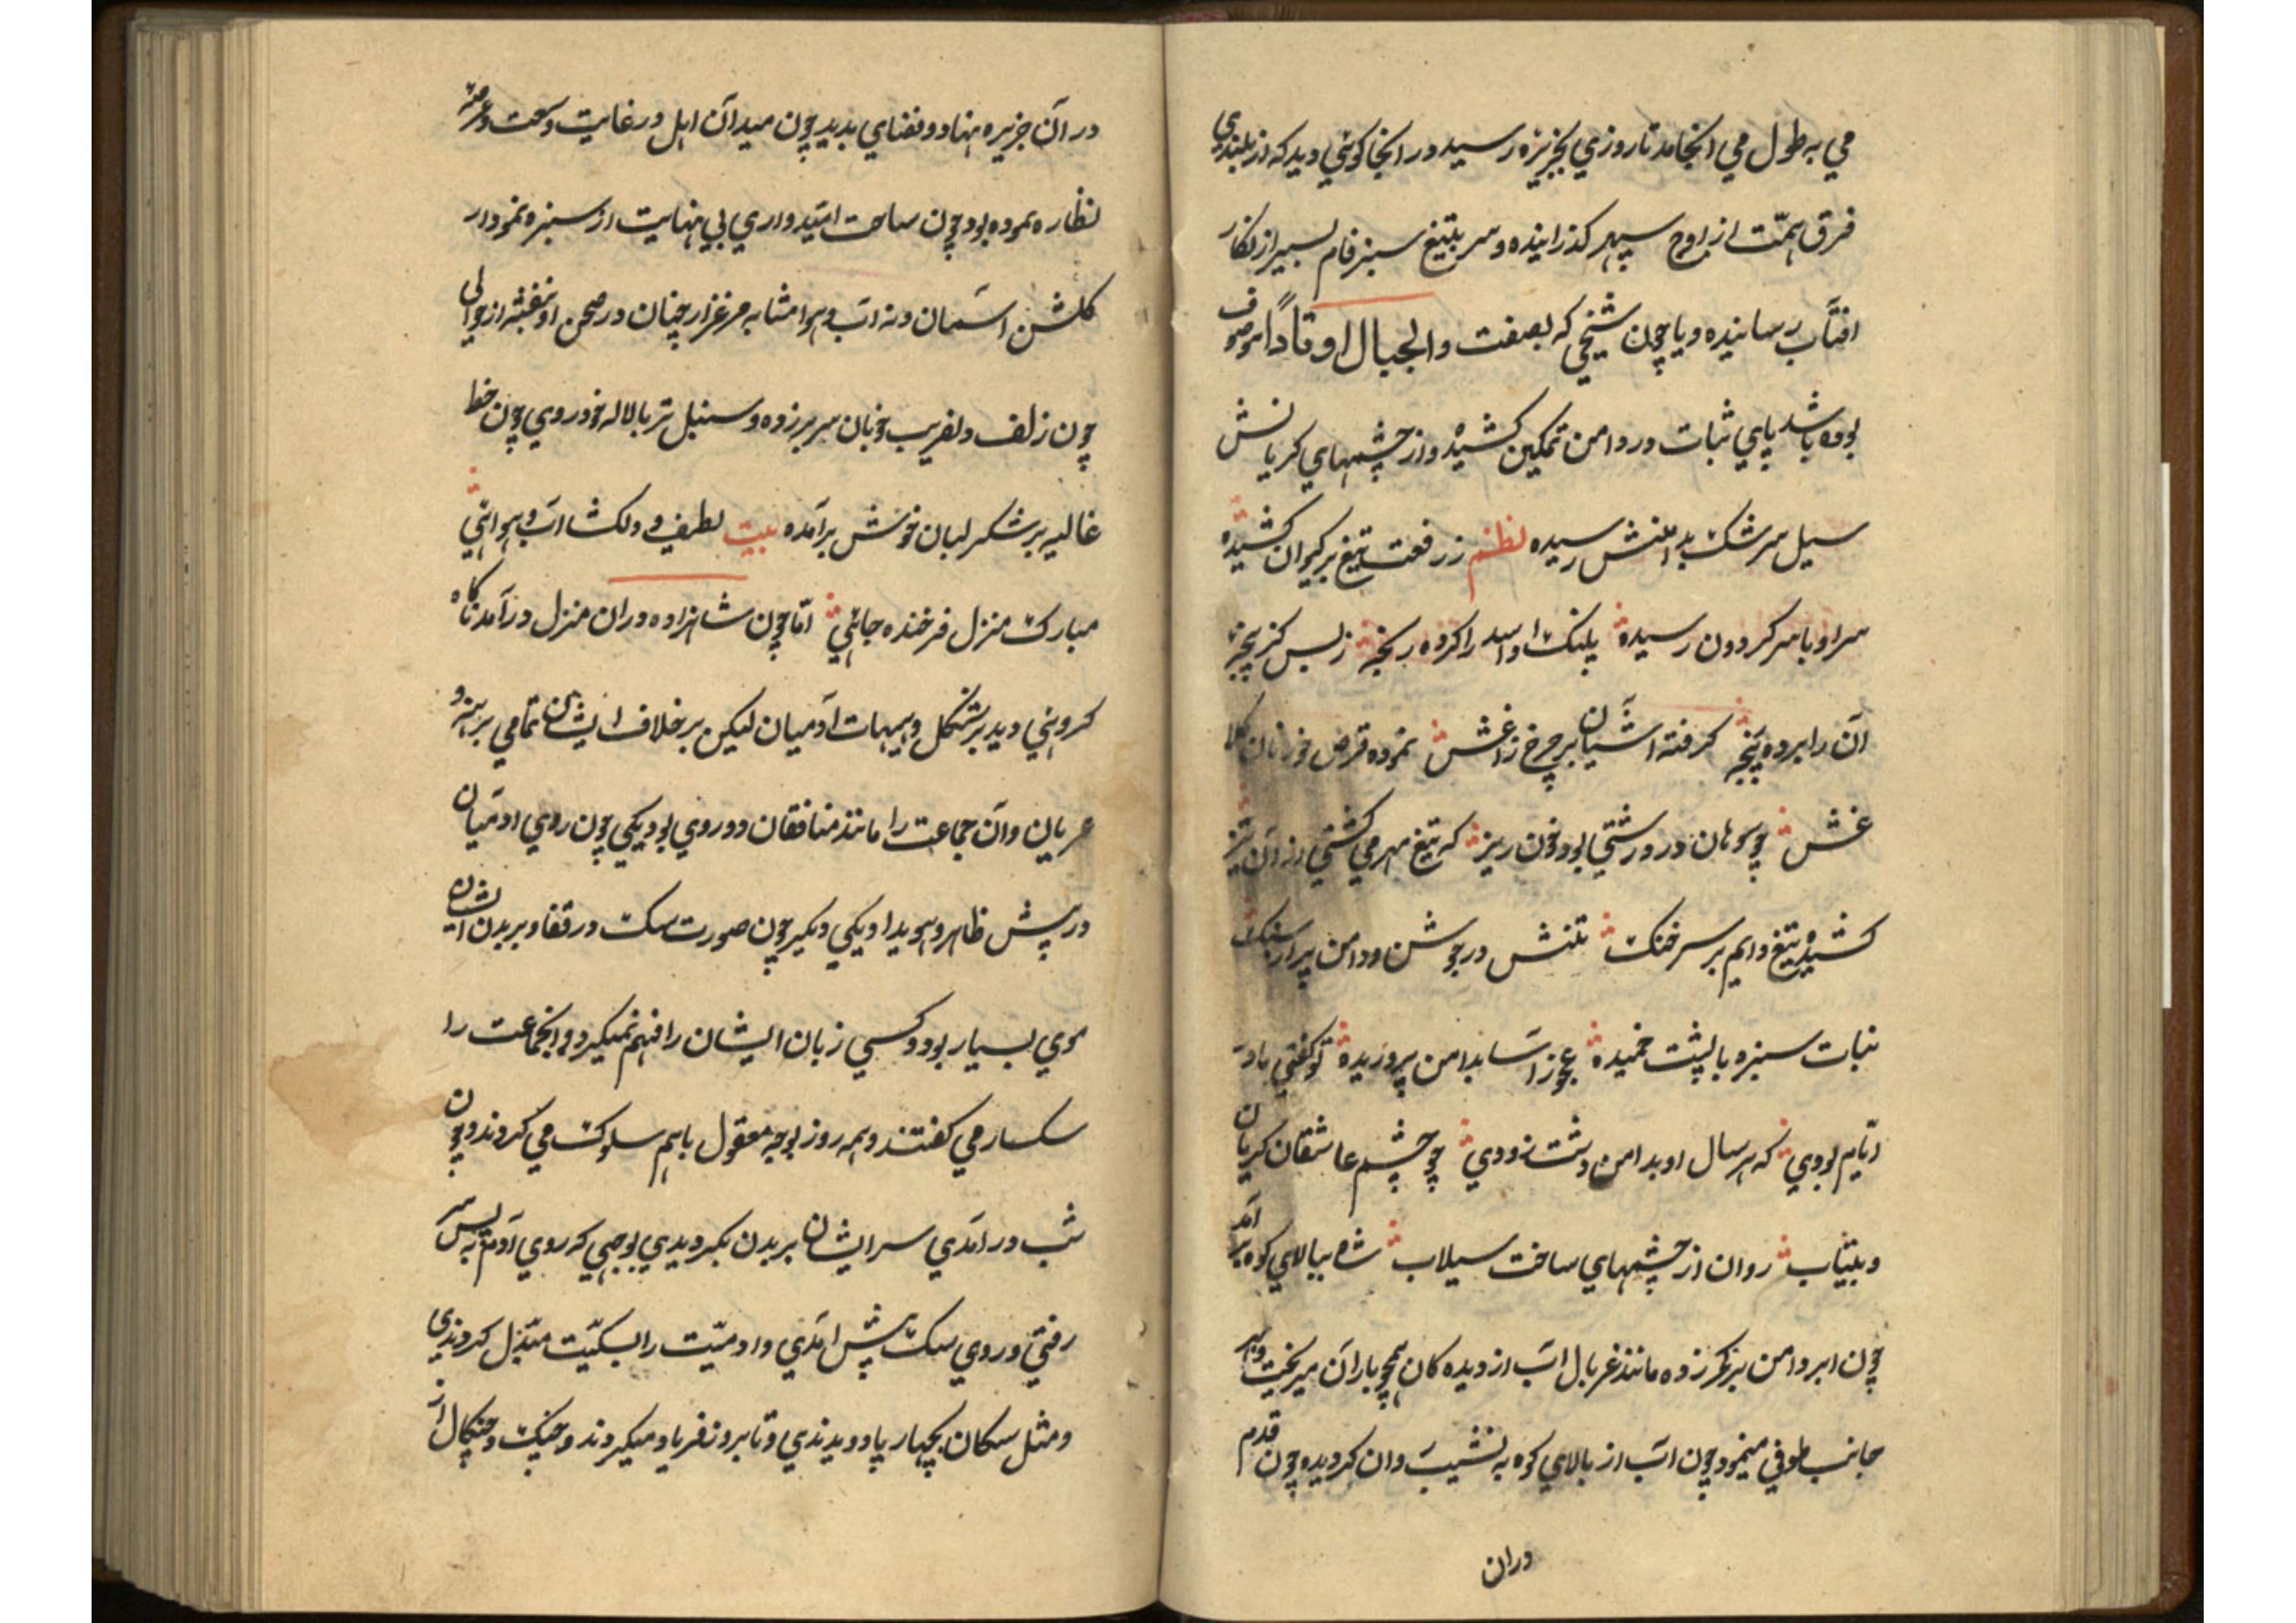 می به طول می انجامد تا روزی بجزیره رسید در انجا کوهی دید که از بلندی
فرق همّت از اوج سپهر کذرانیده و سر بتیغ سبز فام بسپر از نکار
افتاب رسانیده و یا چون شیخی که بصفت والجبال اوتاداً موصوف
بوده باشد پای ثبات در دامن تمکین کشیده و از چشمهای کریانش
سیل سرشک بدامنش رسیده نظم ز رفعت تیغ بر کیوان کشیده
سر او با سر کردون رسیده پلنک او اسد را کرده رنجه ز بس کز پنجه
آن را برده پنجه کرفته اشیان بر چرخ زاغش نموده قرص خور نان کلا
غش چو سوهان در درشتی بود خون ریز که تیغ مهر می کشتی از آن تیز
کشیده تیغ دایم بر سر خنک تنش در جوشن و دامن پر از سنک
نبات سبزه با پشت خمیده عجوز اسا بدامن پروریده تو کفتی مادر
ایّام بودی که هر سال او بدامن دشت زودی چو چشم عاشقان کریان
و بیتاب روان از چشمهای ساخت سیلاب شاه ببالای کوه بر آمد
چون ابر دامن بر کمر زده مانند غربال اب از دیده کان همچو باران میریخت و بهر
جانب طوفی مینمود چون اب از بالای کوه به نشیب روان کردیده چون قدم
دران
در آن جزیره بنهاد و فضای بدید چون میدان امل در غایت وسعت و عرصه
نظاره نموده بود چون ساحت امیّدواری بی نهایت از سبزه نمودار
کلشن اسمان و نه اب و هوا مشابه مرغزار چنان در صحن او بنفشه از حوالی
چون زلف دلفریب خوبان سر بر زده و سنبل تر با لاله خودروی چون خط
غالیه بر شکر لبان خوش برآمده بیت لطیف و دلکشا اب و هوائی
مبارک منزل فرخنده جائی امّا چون شاهزاده دران منزل درآمد ناکاه
کروهی دید بر شکل و هیهات آدمیان لیکن بر خلاف ایشان تمامی برهنه و
عریان و آن جماعت را مانند منافقان دو روی بود یکی چون روی ادمیان
در پیش ظاهر و هویدا و یکی دیکر چون صورت سک در قفا و بر بدن ایشان
موی بسیار بود و کسی زبان ایشان را فهم نمیکرد و انجماعت را
سکسار می کفتند و همه روز بوجه معقول باهم سلوک می کردند و چون
شب در امدی سر ایشان بر بدن بکردیدی بوجهی که روی آدم به پس سر
رفتی و روی سک پیش امدی و ادمیّت را بسکیّت متبدّل کردندی
و مثل سکان بچهار پا دویدندی و تا بروز فریاد میکردند و جنک و چنکال از